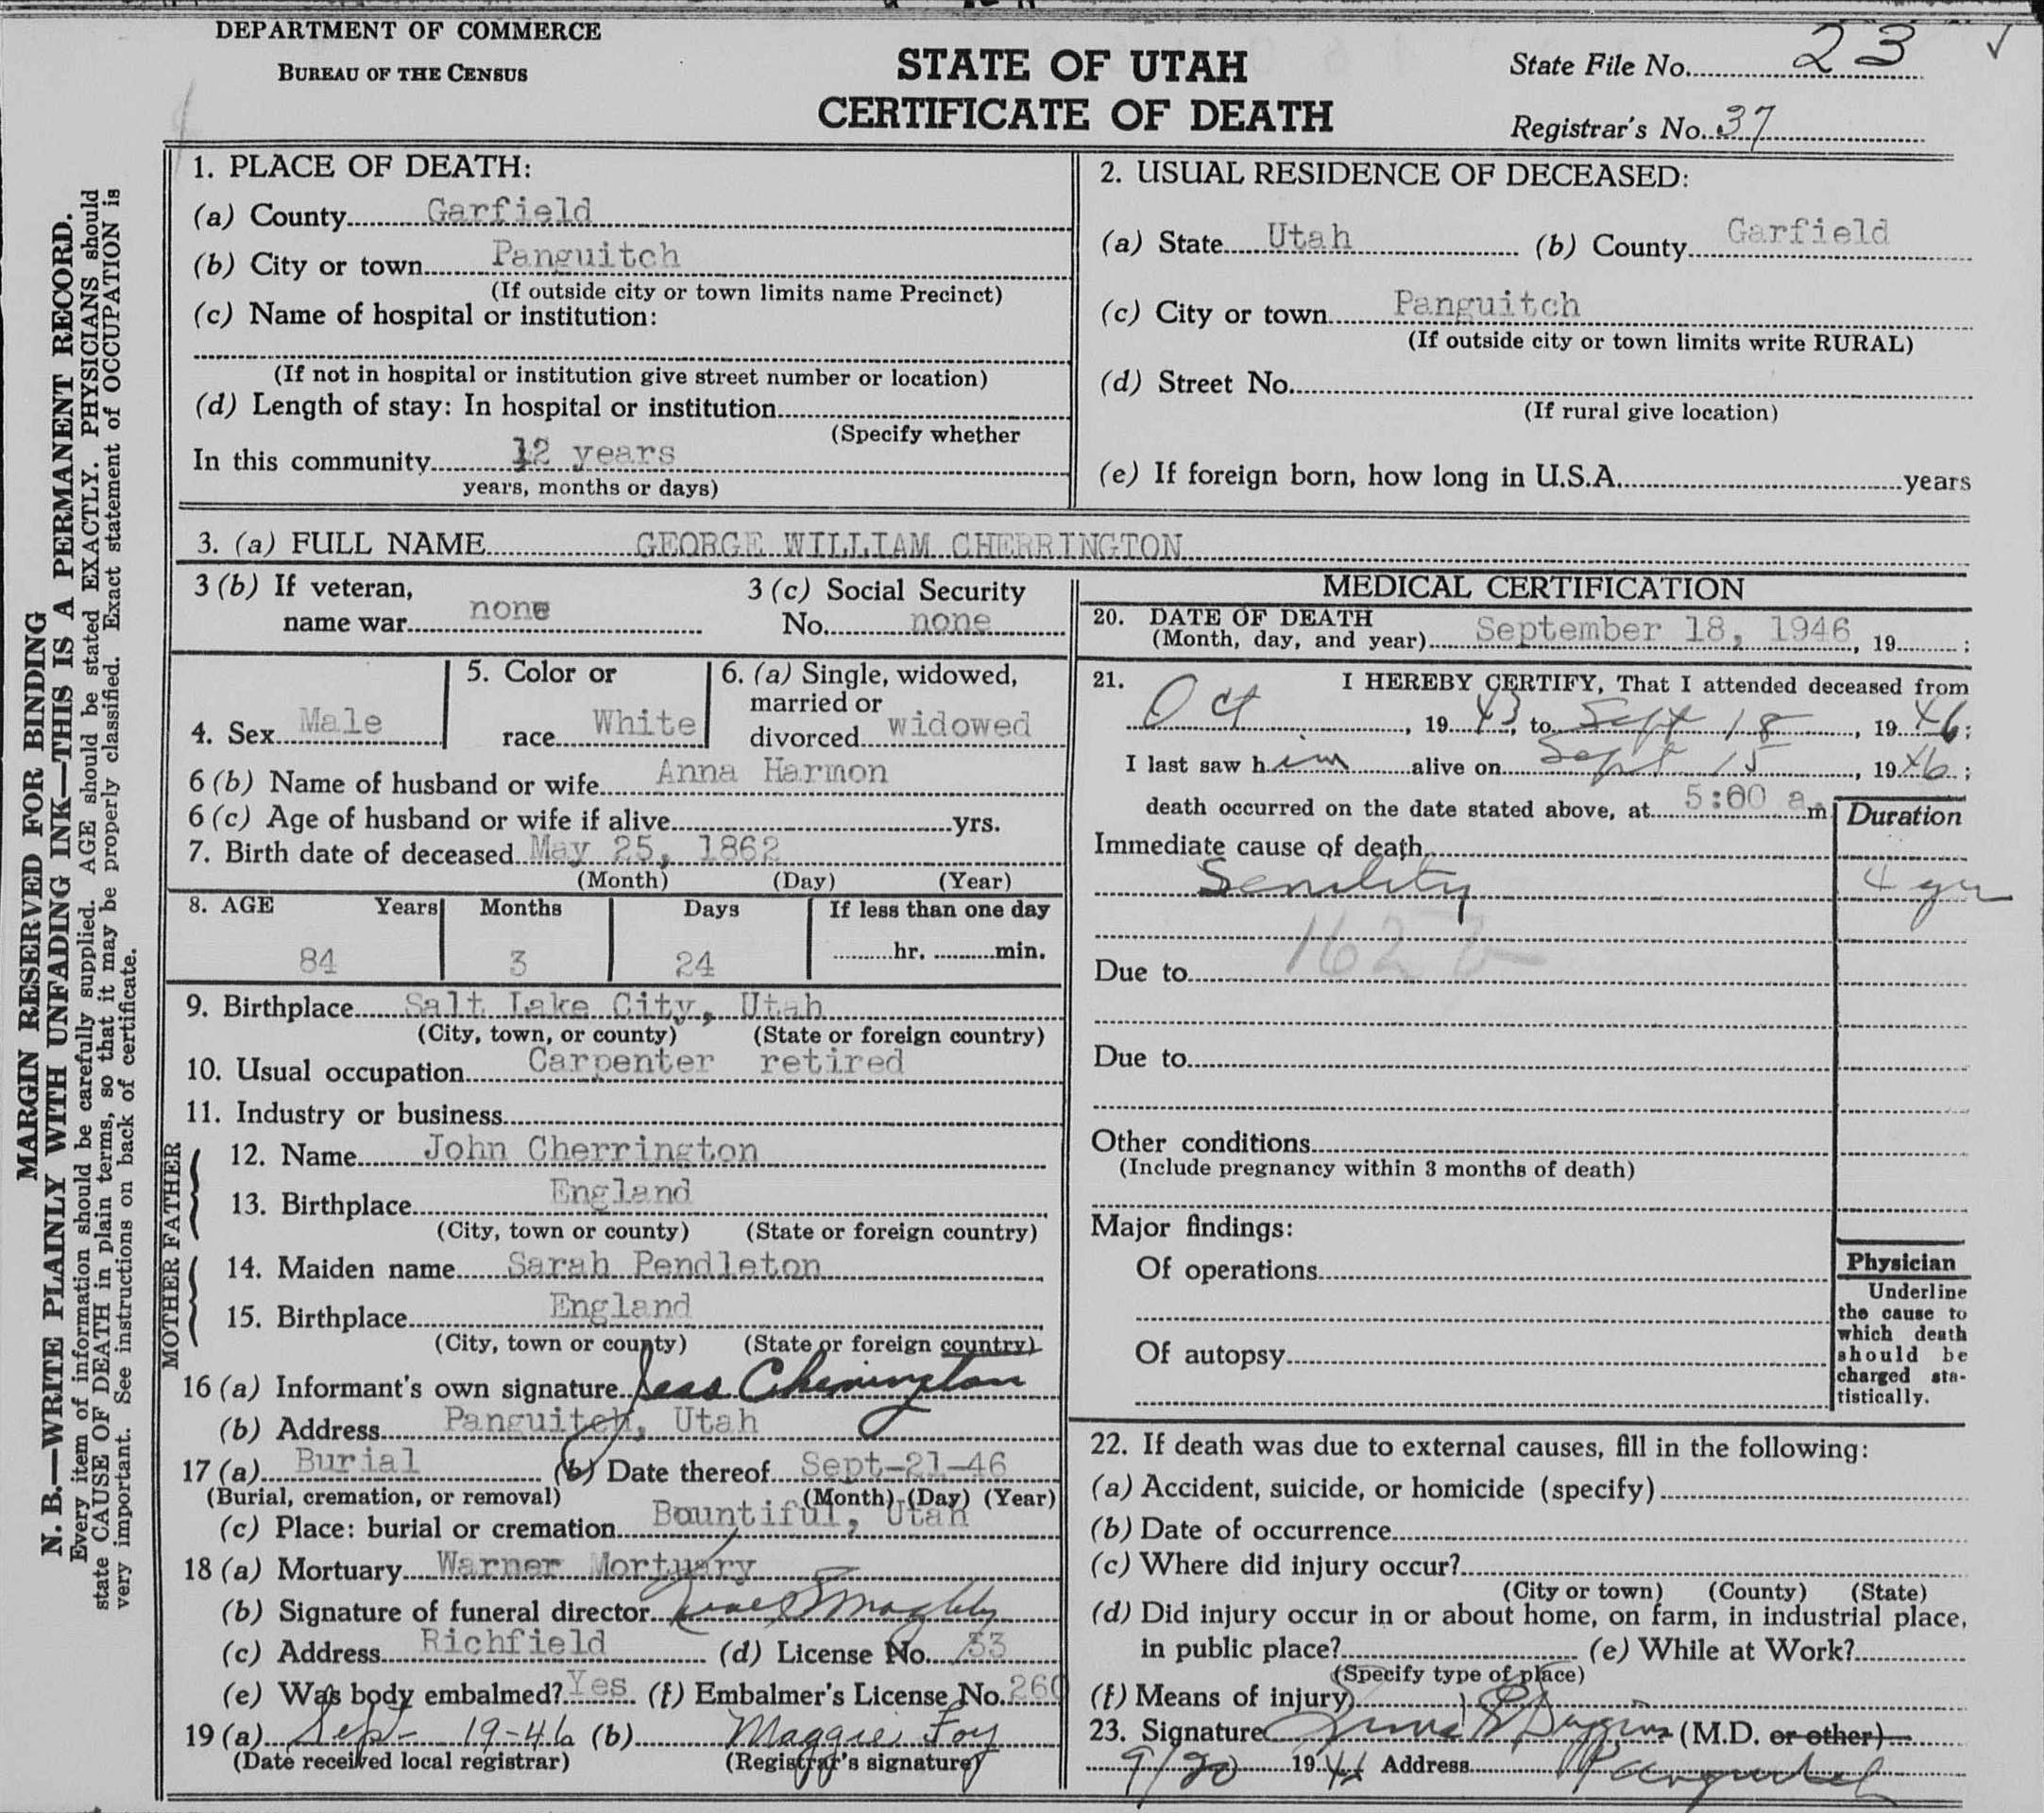 DEPARTMENT OF COMMERCE
BUREAU OF THE CENSUS
STATE OF UTAH
CERTIFICATE OF DEATH
State File No. 23 ✓
Registrar's No. 37
MARGIN RESERVED FOR BINDING
N. B.—WRITE PLAINLY WITH UNFADING INK—THIS IS A PERMANENT RECORD.
Every item of information should be carefully supplied. AGE should be stated EXACTLY. PHYSICIANS should
state CAUSE OF DEATH in plain terms, so that it may be properly classified. Exact statement of OCCUPATION is
very important. See instructions on back of certificate.
1. PLACE OF DEATH:
(a) County Garfield
(b) City or town Panguitch
(If outside city or town limits name Precinct)
(c) Name of hospital or institution:
(If not in hospital or institution give street number or location)
(d) Length of stay: In hospital or institution
(Specify whether
In this community 12 years
years, months or days)
2. USUAL RESIDENCE OF DECEASED:
(a) State Utah (b) County Garfield
(c) City or town Panguitch
(If outside city or town limits write RURAL)
(d) Street No.
(If rural give location)
(e) If foreign born, how long in U.S.A. years
3. (a) FULL NAME GEORGE WILLIAM CHERRINGTON
3 (b) If veteran,
name war none
3 (c) Social Security
No. none
4. Sex Male
5. Color or
race White
6. (a) Single, widowed,
married or
divorced widowed
6 (b) Name of husband or wife Anna Harmon
6 (c) Age of husband or wife if alive yrs.
7. Birth date of deceased May 25, 1862
(Month) (Day) (Year)
8. AGE Years Months Days If less than one day
84 3 24 hr. min.
9. Birthplace Salt Lake City, Utah
(City, town, or county) (State or foreign country)
10. Usual occupation Carpenter retired
11. Industry or business
FATHER
12. Name John Cherrington
13. Birthplace England
(City, town or county) (State or foreign country)
MOTHER
14. Maiden name Sarah Pendleton
15. Birthplace England
(City, town or county) (State or foreign country)
16 (a) Informant's own signature Jess Cherrington
(b) Address Panguitch, Utah
17 (a) Burial (b) Date thereof Sept-21-46
(Burial, cremation, or removal) (Month) (Day) (Year)
(c) Place: burial or cremation Bountiful, Utah
18 (a) Mortuary Warner Mortuary
(b) Signature of funeral director
(c) Address Richfield (d) License No. 33
(e) Was body embalmed? Yes (f) Embalmer's License No. 260
19 (a) Sept 19-46 (b) Maggie Foy
(Date received local registrar) (Registrar's signature)
MEDICAL CERTIFICATION
20. DATE OF DEATH
(Month, day, and year) September 18, 1946, 19 ;
21. I HEREBY CERTIFY, That I attended deceased from
Oct, 19 43, to Sept 18, 19 46;
I last saw him alive on Sept 15, 19 46;
death occurred on the date stated above, at 5:00 a. m
Duration
Immediate cause of death
Senility 4 yr
162 b
Due to
Due to
Other conditions
(Include pregnancy within 3 months of death)
Major findings:
Of operations
Of autopsy
Physician
Underline
the cause to
which death
should be
charged sta-
tistically.
22. If death was due to external causes, fill in the following:
(a) Accident, suicide, or homicide (specify)
(b) Date of occurrence
(c) Where did injury occur?
(City or town) (County) (State)
(d) Did injury occur in or about home, on farm, in industrial place,
in public place? (e) While at Work?
(Specify type of place)
(f) Means of injury
23. Signature (M.D. or other)
9/20 19 46 Address Panguitch